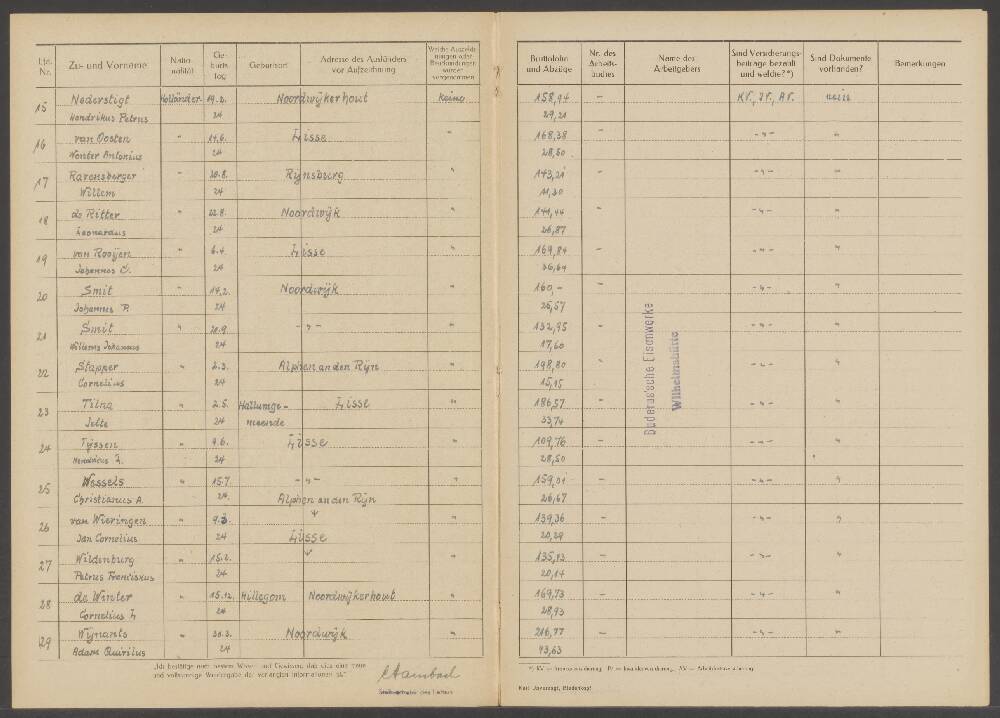 Lfd. Nr. Zu- und Vorname Natio- nalität Ge- burts- tag Geburtsort Adresse des Ausländers vor Aufzeichnung
Bruttolohn und Abzüge Nr. des Arbeits- buches Name des Arbeitgebers Sind Versicherungs- beiträge bezahlt und welche?*) Sind Dokumente vorhanden? Bemerkungen
15 Nederstigt Holländer 19.2. Noordwijkerhout keine 158,94 – KV., IV., AV. nein
Hendrikus Petrus 24 29,21
16 van Oosten " 14.6. Lisse " 168,38 – -"- "
Wouter Antonius 24 28,50
17 " 20.8. Rijnsburg " 143,21 – -"- "
Willem 24 11,30
18 de Ritter " 22.8. Noordwijk " 141,44 – -"- "
Leonardus 24 26,87
19 van Rooijen " 6.4. Lisse " 169,84 – -"- "
Johannes C. 24 36,64
20 Smit " 14.2. Noordwijk " 160,– – -"- "
Johannes P. 24 26,57
21 Smit " 20.9. -"- " 132,95 – -"- "
Willems Johannes 24 17,60
22 Stapper " 2.3. Alphen an den Rijn " 198,80 -"- "
Cornelius 24 15,15
23 " 2.5. Hallumge- Lisse " 186,57 – -"- "
Jelte 24 meende 33,74
24 Tijssen " 9.6. Lisse " 109,76 – -"- "
24 28,50
25 Wessels " 15.7. -"- " 159,01 – -"- "
Christianus A. 24 Alphen an den Rijn 26,67
26 van Wieringen " 9.3. " " 139,36 – -"- "
Jan Cornelius 24 Lisse 20,29
27 Wildenburg " 15.2. " " 135,13 – -"- "
Petrus Franciskus 24 20,14
28 de Winter " 15.12. Hillegom Noordwijkerhout " 169,73 – -"- "
Cornelius L. 24 28,93
29 Wijnants " 30.3. Noordwijk " 216,77 – -"- "
Adam Quirilus 24 43,63
Buderus'sche Eisenwerke
Wilhelmshütte
„Ich bestätige nach bestem Wissen und Gewissen, daß dies eine treue
und vollständige Wiedergabe der verlangten Informationen ist."
*) KV = Krankenversicherung, IV = Invalidenversicherung, AV = Arbeitslosenversicherung
Karl Biedenkopf